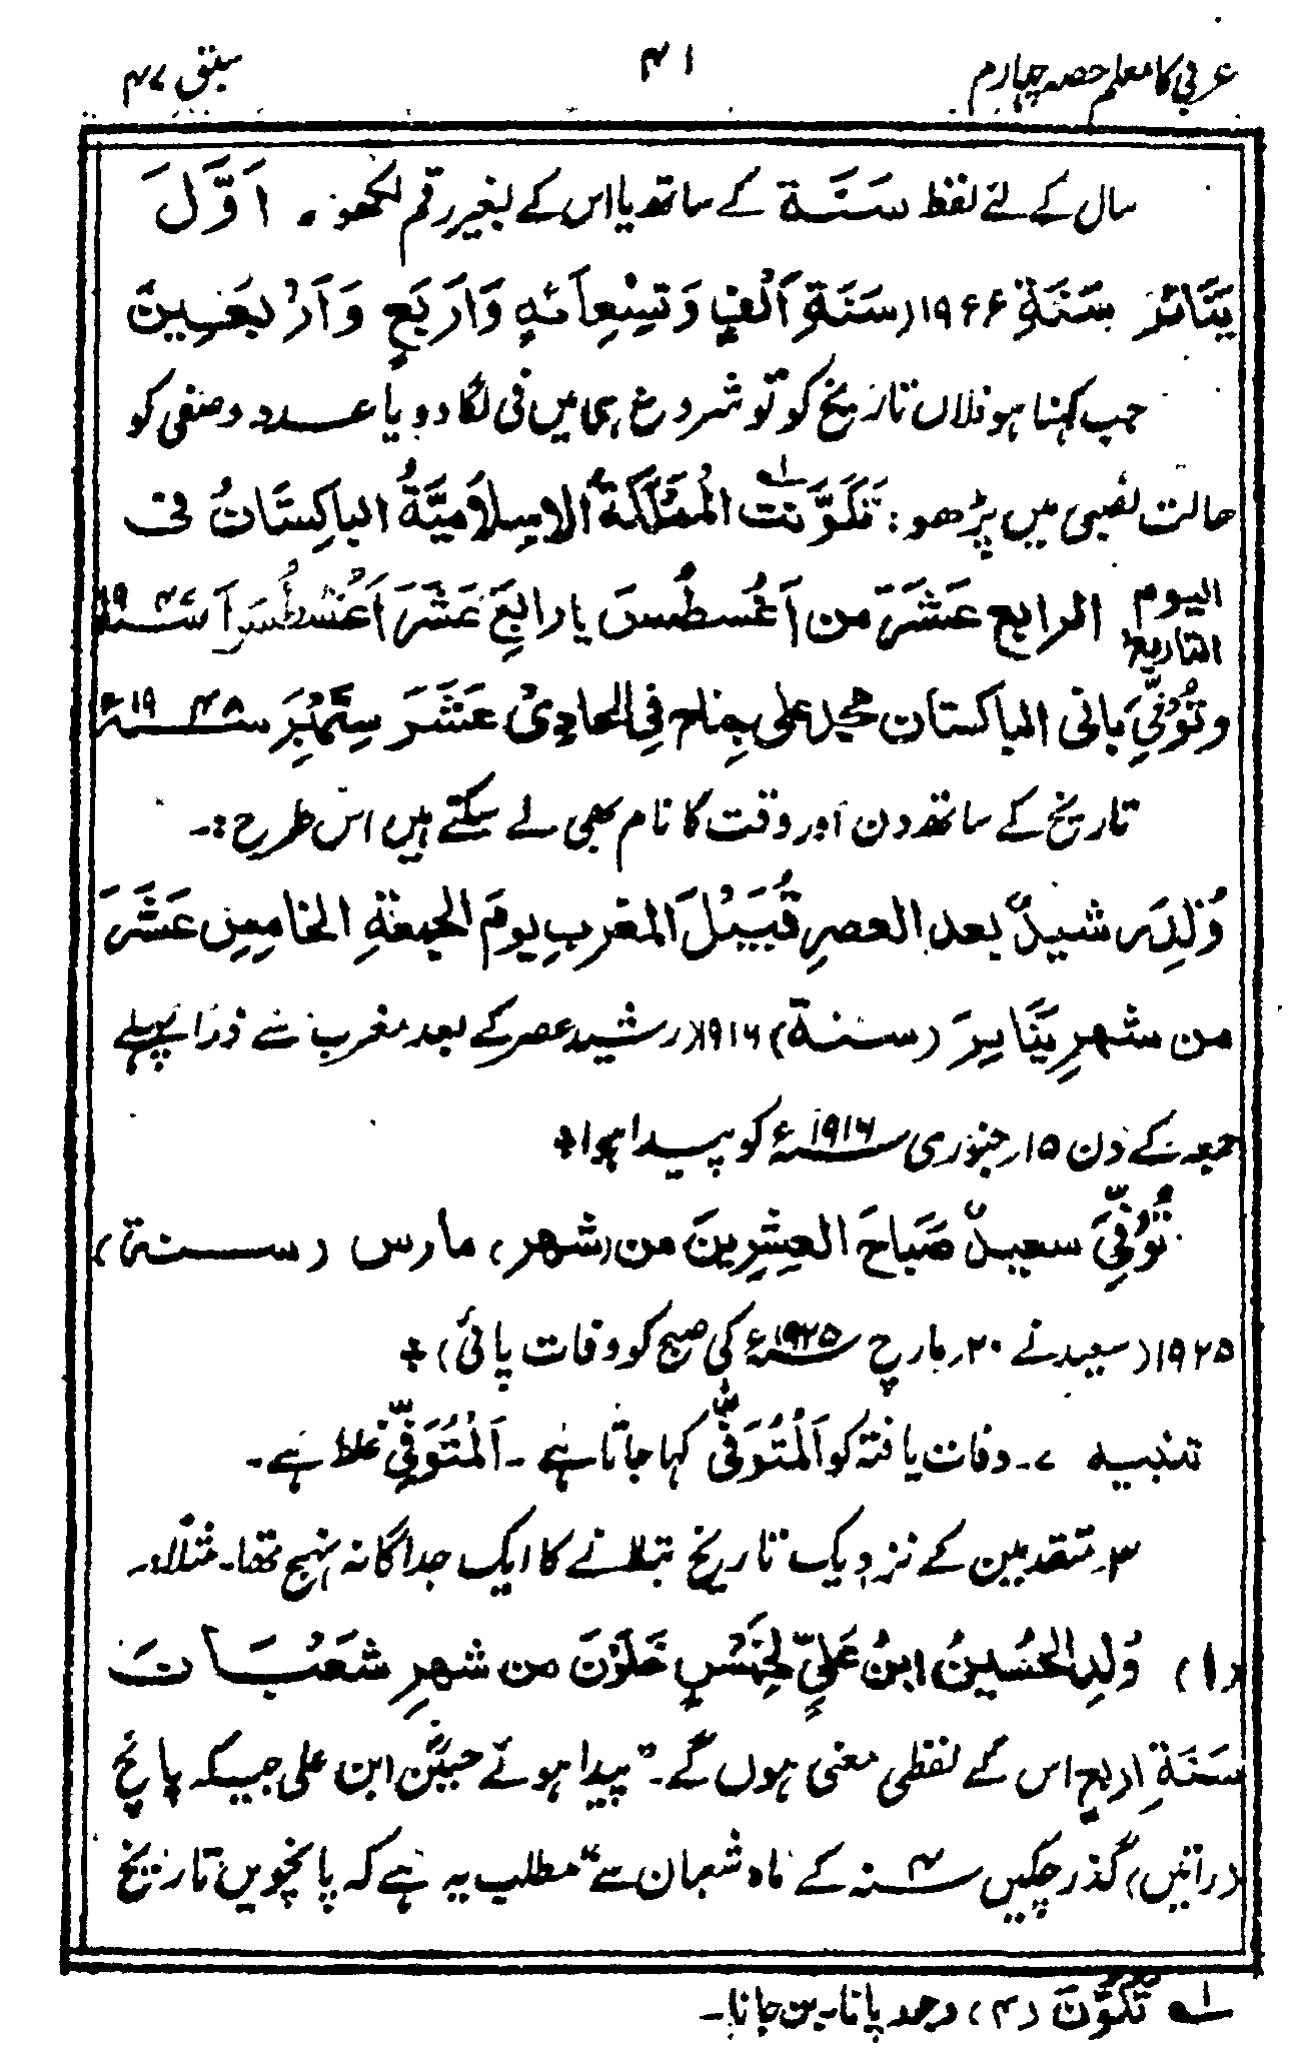 عربی کا معلم حصہ چہارم
۴۱
سبق ۴۷
سال کے لئے لفظ سَنَة کے ساتھ یا اس کے بغیر رقم لکھو۔ اَوَّلَ
يَنَائِرَ سَنَةِ ۱۹۶۶ (سَنَةِ اَلْفٍ وَتِسْعِمِائَةٍ وَاَرْبَعٍ وَاَرْبَعِينَ
جب کہنا ہو فلاں تاریخ کو تو شروع ہی میں فی لگا دو یا عدد وصفی کو
حالت نصبی میں پڑھو: تَكَوَّنَت۱ الْمَمْلَكَةُ الاِسلَامِيَّةُ الباكِستَانُ فی
اليوم التاريخ الرابع عَشَرَ من اَغُسطُسَ یا رابِعَ عَشَرَ اَغُسْطُسَ سَنة ۱۹۴۷
وتُوُفِّيَ بانی الباکستان محمد علی جناح فِی الحادِیْ عَشَرَ سِتَمْبَرَ سنہ ۱۹۴۸ء
تاریخ کے ساتھ دن اور وقت کا نام بھی لے سکتے ہیں اس طرح:۔
وُلِدَ رشيدٌ بعد العصرِ قُبَيْلَ المغربِ يومَ الجمعةِ الخامِسِ عَشَرَ
من شهرِ يَنَايِرَ (سنة) ۱۹۱۶ (رشید عصر کے بعد مغرب سے ذرا پہلے
جمعہ کے دن ۱۵ جنوری ۱۹۱۶ء کو پیدا ہوا+
تُوُفِّيَ سعيدٌ صَبَاحَ العِشرِينَ من (شهر) مارس (سنة)
۱۹۲۵ (سعید نے ۲۰ مارچ ۱۹۲۵ء کی صبح کو وفات پائی)+
تنبیہ ۷۔ وفات یافتہ کو اَلْمُتَوَفّٰى کہا جاتا ہے۔ اَلْمُتَوَفِّي غلط ہے۔
۳۔ متقدمین کے نزدیک تاریخ بتلانے کا ایک جداگانہ نہج تھا۔ مثلاً:۔
(۱) وُلِدَ الحُسَينُ ابنُ عَلِيٍّ لِخَمْسٍ خَلَوْنَ من شهرِ شَعْبَانَ
سَنَةِ اربعٍ اس کے لفظی معنی ہوں گے۔ "پیدا ہوئے حسین ابن علی جب کہ پانچ
(راتیں) گذر چکیں سنہ ۴ کے ماہ شعبان سے" مطلب یہ ہے کہ پانچویں تاریخ
۱ تَكَوَّنَ (۴) وجود پانا۔ بن جانا۔